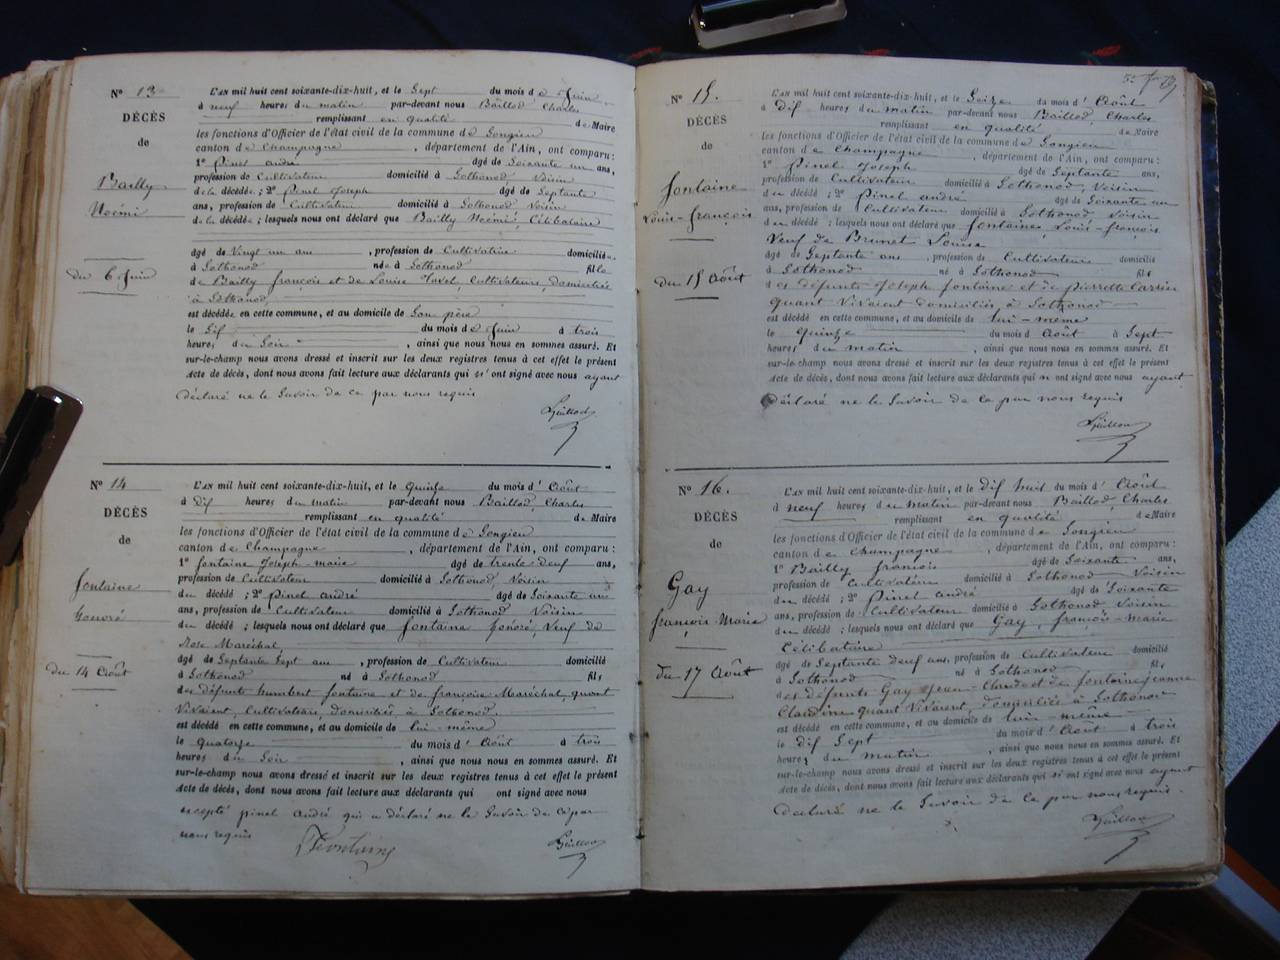 Nº 13
DÉCÈS
de
Bailly
Noémi
du 6 Juin
L'AN mil huit cent soixante-dix-huit, et le Sept du mois de Juin
à neuf heures du matin par-devant nous Baillod, Charles
remplissant en qualité de Maire
les fonctions d'Officier de l'état civil de la commune de Songieu
canton de Champagne, département de l'Ain, ont comparu:
1º Pinel andré âgé de Soixante un ans,
profession de Cultivateur domicilié à Sothonod Voisin
de la décédée; 2º Pinel Joseph âgé de Septante
ans, profession de Cultivateur domicilié à Sothonod Voisin
de la décédée; lesquels nous ont déclaré que Bailly Noémi, Célibataire
âgé de Vingt un ans, profession de Cultivatrice domiciliée
à Sothonod née à Sothonod fille
de Bailly françois et de Louise Cultivateurs, domiciliés
à Sothonod,
est décédée en cette commune, et au domicile de Son père
le Six du mois de Juin à trois
heures du Soir, ainsi que nous nous en sommes assuré. Et
sur-le-champ nous avons dressé et inscrit sur les deux registres tenus à cet effet le présent
Acte de décès, dont nous avons fait lecture aux déclarants qui n'ont signé avec nous ayant
déclaré ne le Savoir de ce par nous requis
Baillod
Nº 14
DÉCÈS
de
fontaine
honoré
du 14 Août
L'AN mil huit cent soixante-dix-huit, et le quinze du mois d'Août
à Dix heures du matin par-devant nous Baillod, Charles
remplissant en qualité de Maire
les fonctions d'Officier de l'état civil de la commune de Songieu
canton de Champagne, département de l'Ain, ont comparu:
1º fontaine Joseph-marie âgé de trente-neuf ans,
profession de Cultivateur domicilié à Sothonod, Voisin
du décédé; 2º Pinel andré âgé de Soixante un
ans, profession de Cultivateur domicilié à Sothonod Voisin
du décédé; lesquels nous ont déclaré que fontaine honoré, Veuf de
Rose Maréchal,
âgé de Septante Sept ans, profession de Cultivateur domicilié
à Sothonod né à Sothonod fils
des défunts humbert fontaine et de françoise Maréchal, quant
Vivaient, Cultivateurs, domiciliés à Sothonod
est décédé en cette commune, et au domicile de lui-même
le quatorze du mois d'Août à trois
heures du Soir, ainsi que nous nous en sommes assuré. Et
sur-le-champ nous avons dressé et inscrit sur les deux registres tenus à cet effet le présent
Acte de décès, dont nous avons fait lecture aux déclarants qui ont signé avec nous
excepté pinel andré qui a déclaré ne le Savoir de ce par
nous requis
Fontaine
Baillod
Nº 15.
DÉCÈS
de
fontaine
Louis-françois
du 15 Août
L'AN mil huit cent soixante-dix-huit, et le Seize du mois d'Août
à Dix heures du matin par-devant nous Baillod, Charles
remplissant en qualité de Maire
les fonctions d'Officier de l'état civil de la commune de Songieu
canton de Champagne, département de l'Ain, ont comparu:
1º Pinel Joseph âgé de Septante ans,
profession de Cultivateur domicilié à Sothonod, Voisin
du décédé; 2º Pinel andré âgé de Soixante un
ans, profession de Cultivateur domicilié à Sothonod Voisin
du décédé; lesquels nous ont déclaré que fontaine, Louis-françois
Veuf de Brunet Louise
âgé de Septante ans, profession de Cultivateur domicilié
à Sothonod né à Sothonod fils
des défunts Joseph fontaine et de pierrette Carrier
quant Vivaient domiciliés à Sothonod
est décédé en cette commune, et au domicile de lui-même
le quinze du mois d'Août à Sept
heures du matin, ainsi que nous nous en sommes assuré. Et
sur-le-champ nous avons dressé et inscrit sur les deux registres tenus à cet effet le présent
Acte de décès, dont nous avons fait lecture aux déclarants qui n'ont signé avec nous ayant
déclaré ne le Savoir de ce par nous requis
Baillod
Nº 16.
DÉCÈS
de
Gay
françois-Marie
du 17 Août
L'AN mil huit cent soixante-dix-huit, et le dix huit du mois d'Août
à neuf heures du matin par-devant nous Baillod, Charles
remplissant en qualité de Maire
les fonctions d'Officier de l'état civil de la commune de Songieu
canton de Champagne, département de l'Ain, ont comparu:
1º Bailly françois âgé de Soixante ans,
profession de Cultivateur domicilié à Sothonod Voisin
du décédé; 2º Pinel andré âgé de Soixante
ans, profession de Cultivateur domicilié à Sothonod Voisin
du décédé; lesquels nous ont déclaré que Gay, françois-marie
Célibataire
âgé de Septante neuf ans, profession de Cultivateur domicilié
à Sothonod né à Sothonod fils
des défunts Gay Jean-Claude et de fontaine Jeanne
Claudine quant Vivaient, domiciliés à Sothonod
est décédé en cette commune, et au domicile de lui-même
le dix Sept du mois d'Août à trois
heures du matin, ainsi que nous nous en sommes assuré. Et
sur-le-champ nous avons dressé et inscrit sur les deux registres tenus à cet effet le présent
Acte de décès, dont nous avons fait lecture aux déclarants qui n'ont signé avec nous ayant
déclaré ne le Savoir de ce par nous requis.
Baillod